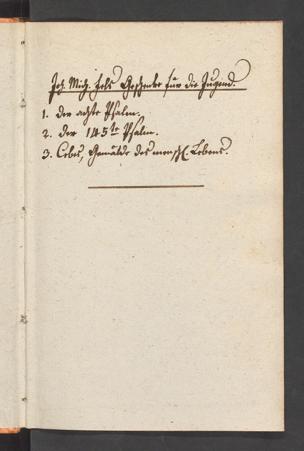 Joh. Mich. Fels Geschenke für die Jugend.
1. der achte Psalm.
2. der 145te Psalm.
3. Cebes, Gemälde des menschl. Lebens.